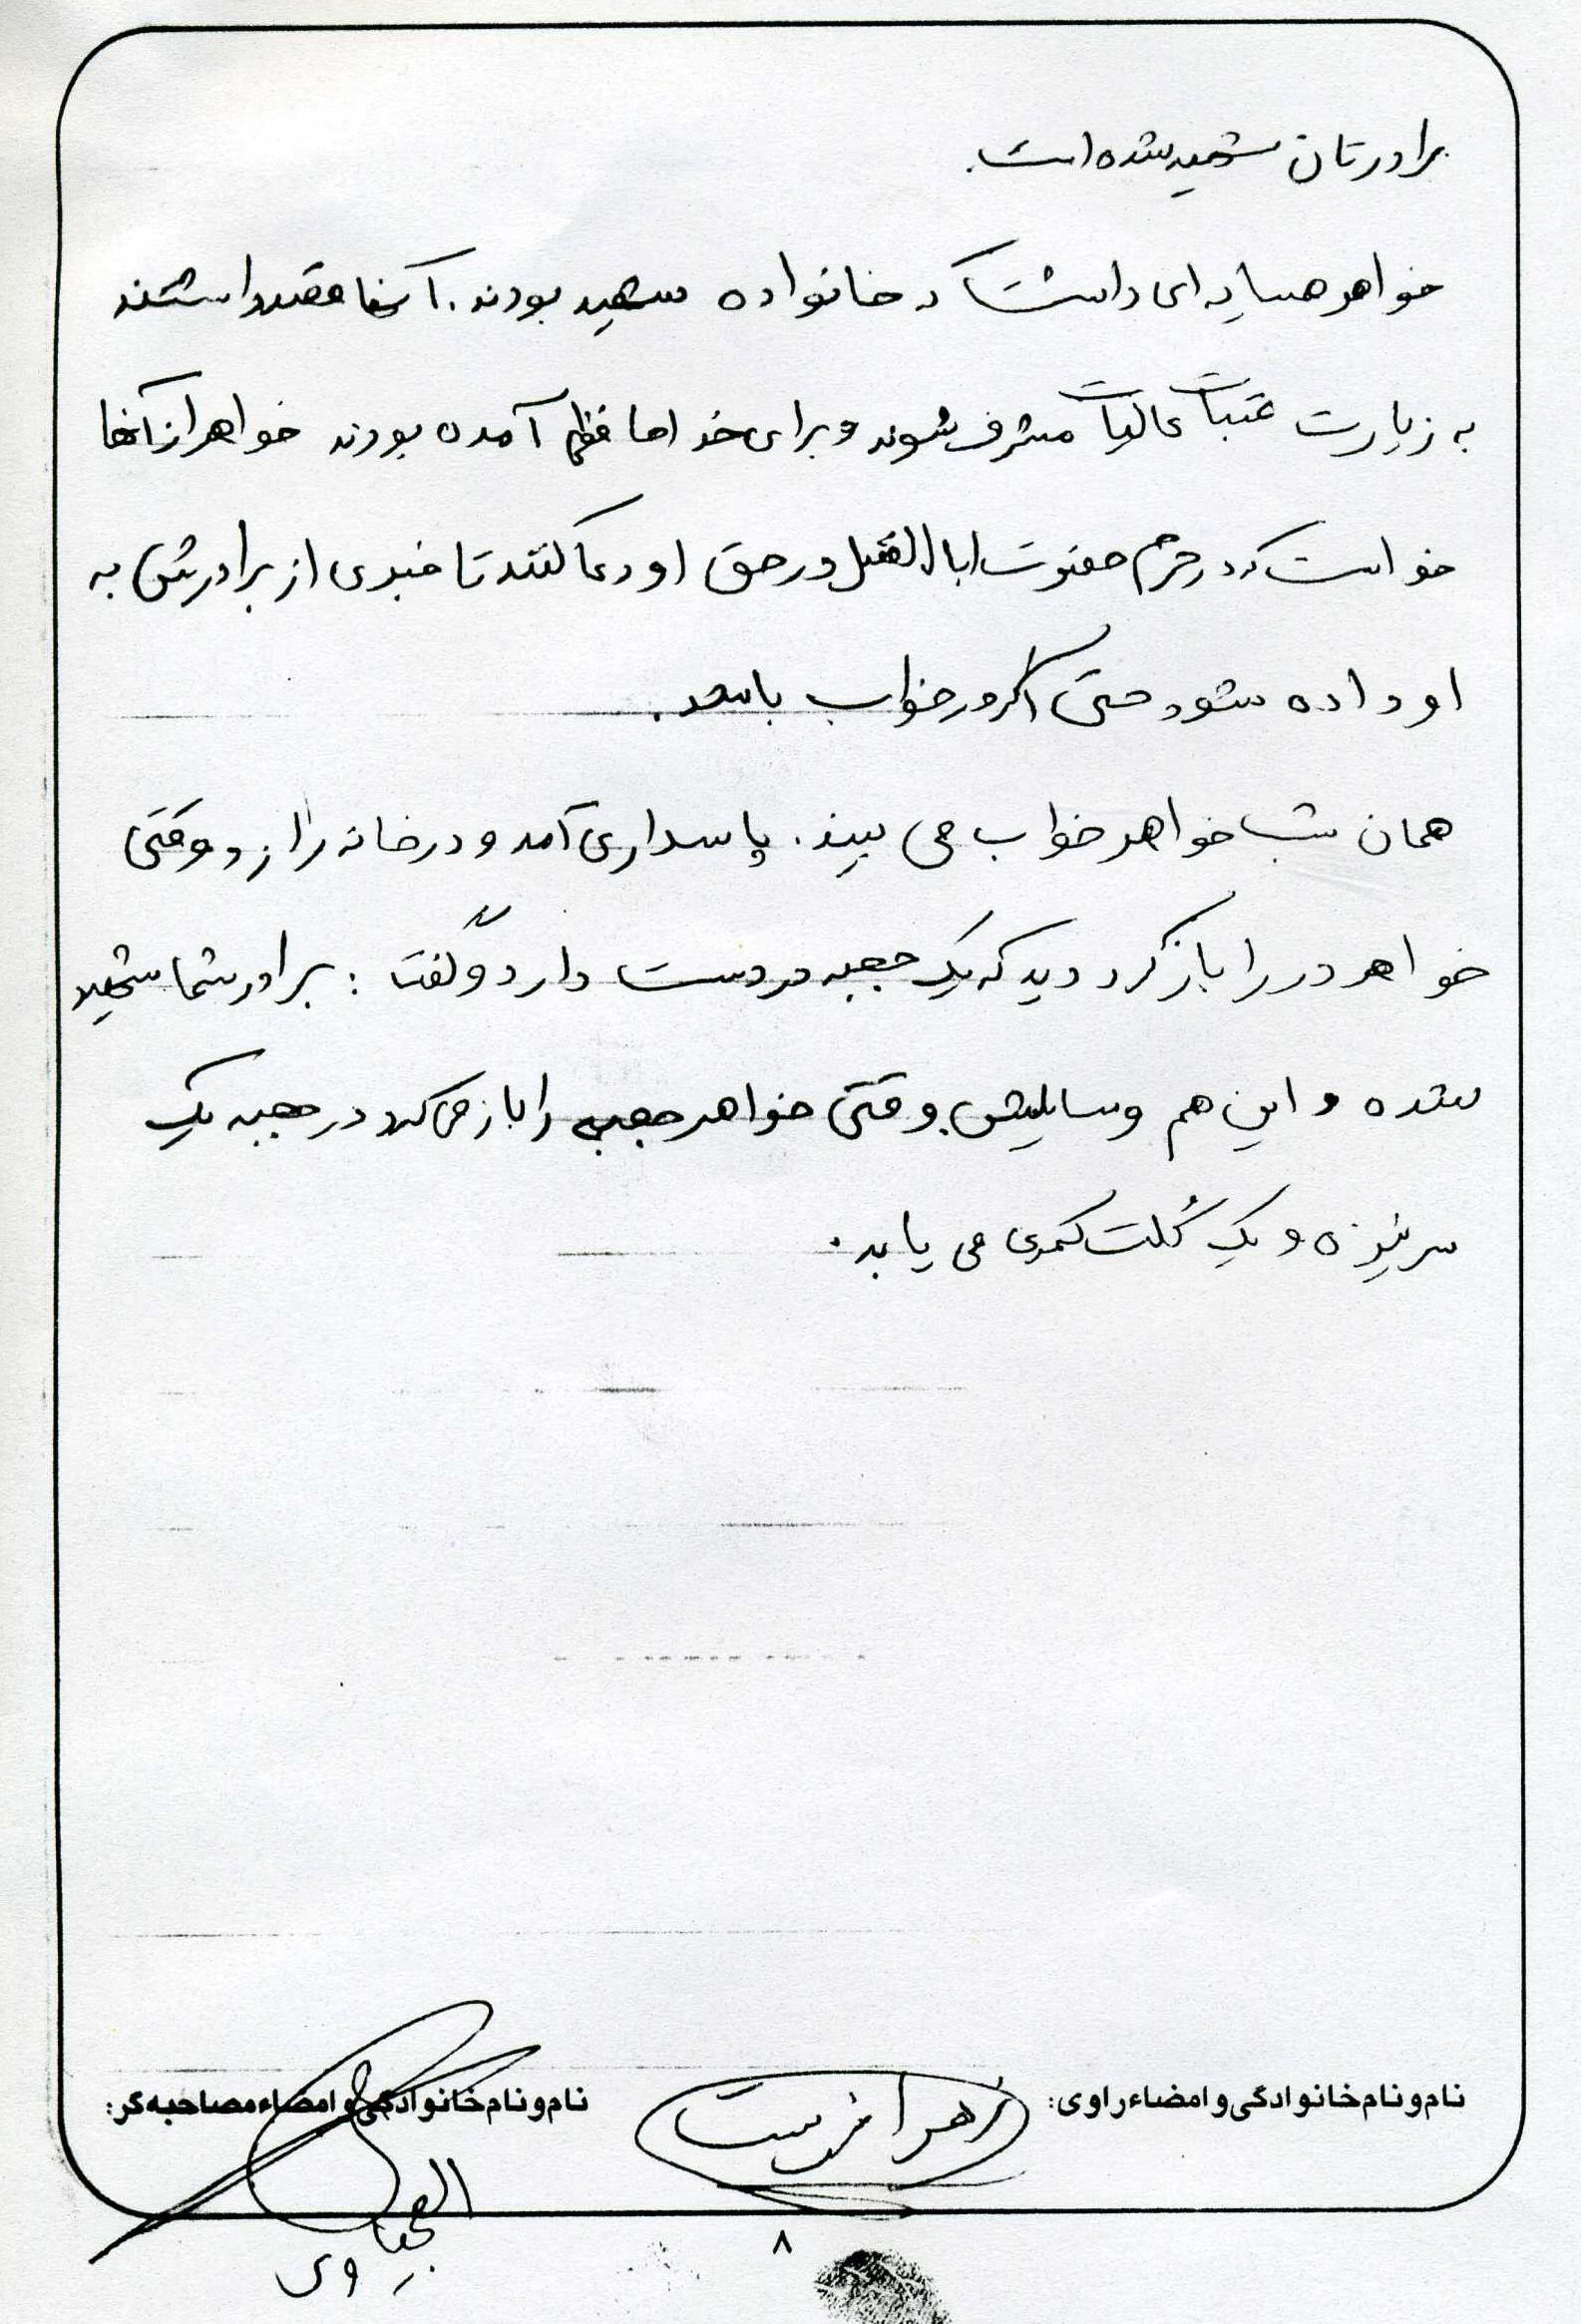 برادرتان شهید شده است.
خواهر همسایه ای داشت که خانواده شهید بودند. آنها قصد داشتند
به زیارت عتبات عالیات مشرف شوند و برای خداحافظی آمده بودند خواهر از آنها
خواست که در حرم حضرت اباالفضل در حق او دعا کنند تا خبری از برادرش به
او داده شود حتی اگر در خواب باشد.
همان شب خواهر خواب می بیند. پاسداری آمد و در خانه را زد و وقتی
خواهر در را باز کرد دید که یک جعبه در دست دارد و گفت: برادر شما شهید
شده و این هم وسایلش وقتی خواهر جعبه را باز می کند در جعبه یک
سرنیزه و یک کُلت کمری می یابد.
نام و نام خانوادگی و امضاء راوی: زهرا
نام و نام خانوادگی و امضاء مصاحبه گر:
۸